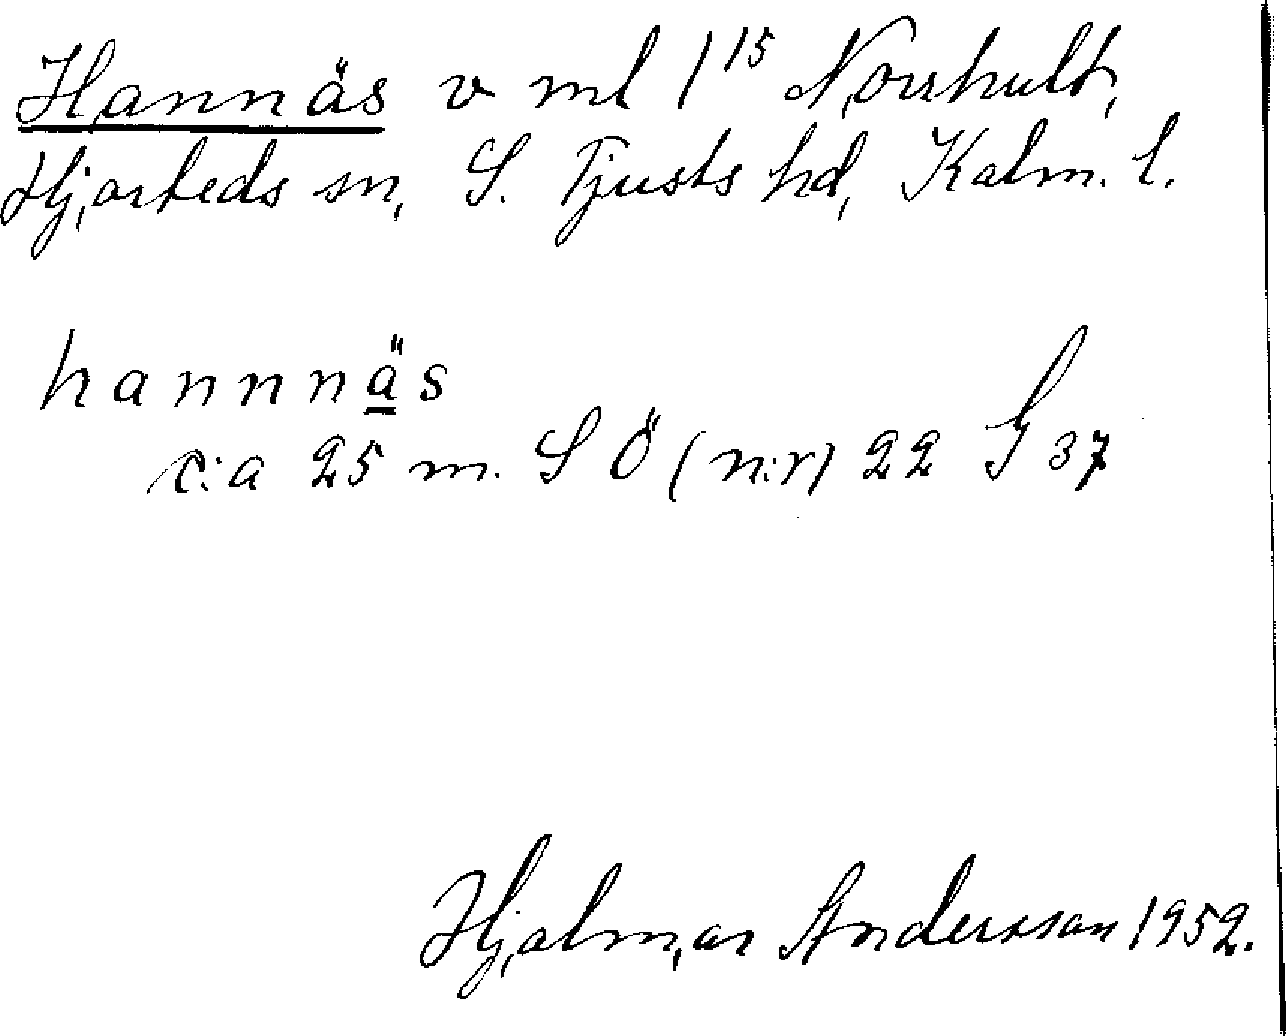 Hannäs v ml 1¹⁵ Norrhult,
Hjorteds sn, S. Tjusts hd, Kalm. l.
hannnäs
c:a 25 m. S Ö (n:r) 22 G 37
Hjalmar Andersson 1952.